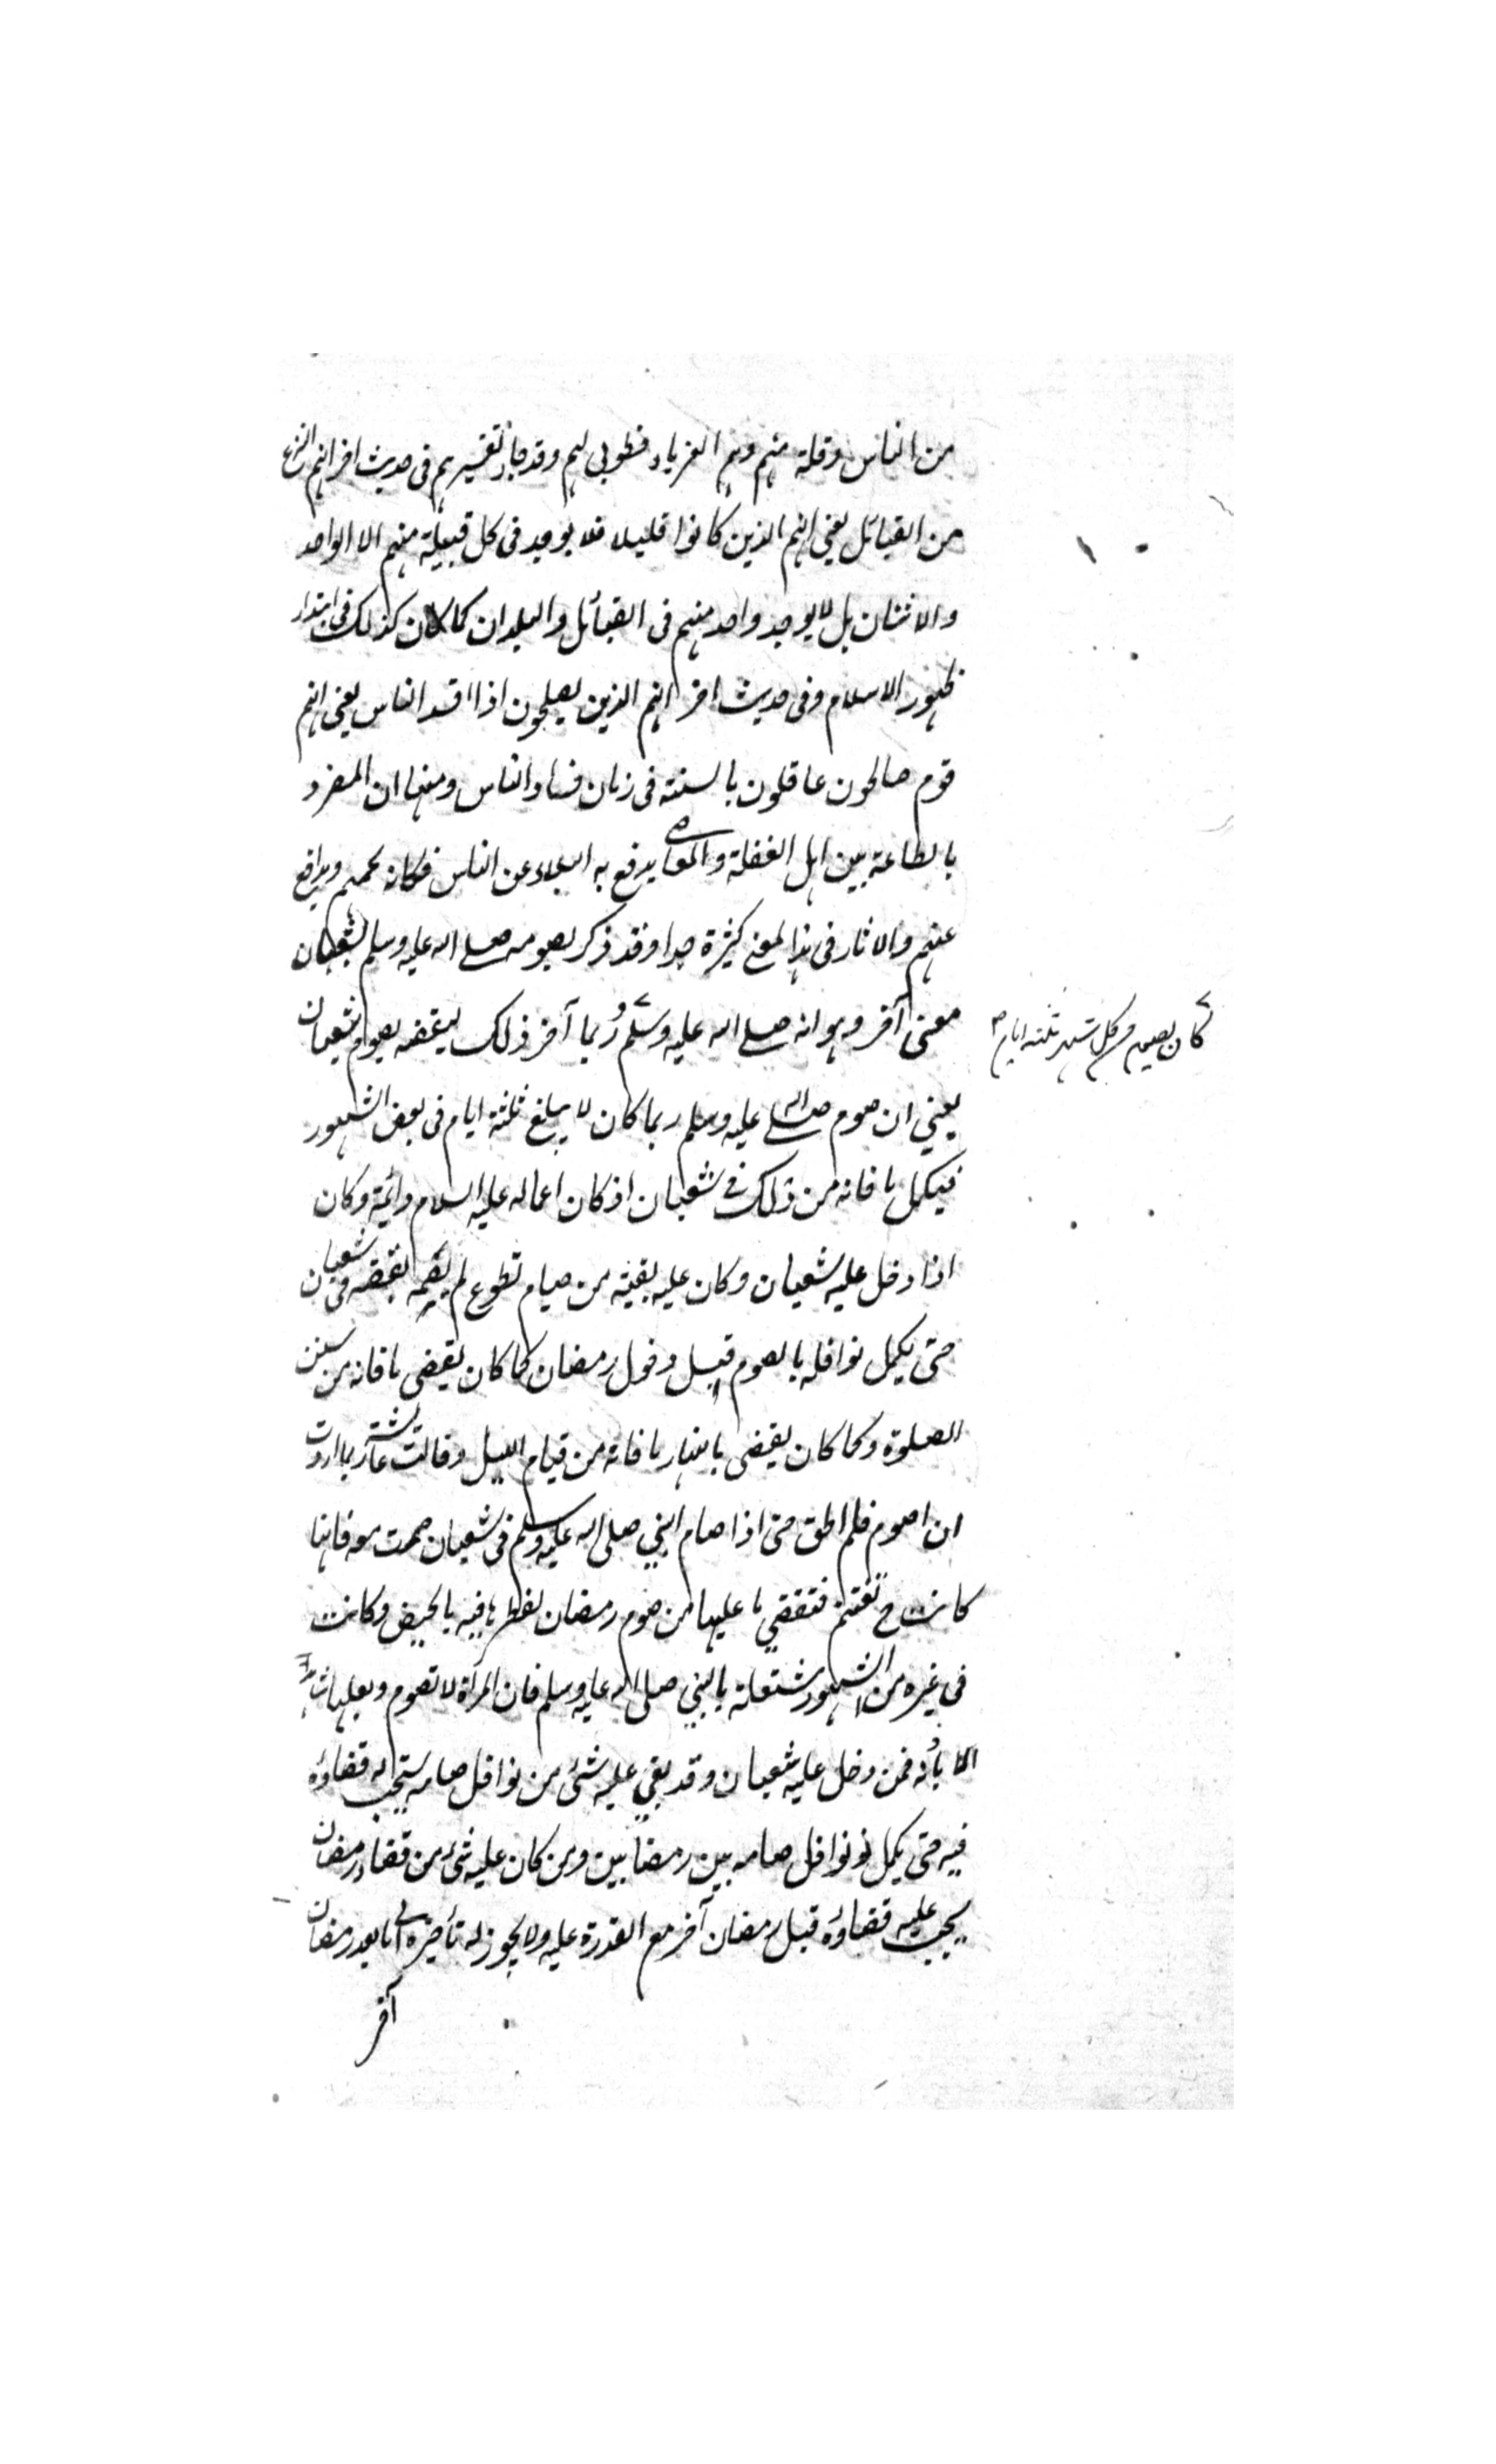 من الناس وقلة منهم وهم الغرباء فطوبى لهم وقد جاء تفسيرهم فى حديث اخر انهم النزاع
من القبائل يعنى انهم الذين كانوا قليلا فلا يوجد فى كل قبيلة منهم الا الواحد
والاثنان بل لا يوجد واحد منهم فى القبائل والبلدان كما كان كذلك فى ابتداء
ظهور الاسلام وفى حديث اخر انهم الذين يصلحون اذا فسد الناس يعنى انهم
قوم صالحون عاقلون بالسنة فى زمان فساد الناس ومنها ان المنفرد
بالطاعة بين اهل الغفلة والمعاصى يدفع به البلاء عن الناس فكانه يحميهم ويدافع
عنهم والاثار فى هذا المعنى كثيرة جدا وقد ذكر لصومه صلى الله عليه وسلم لشعبان
معنى آخر وهو انه صلى الله عليه وسلم ربما آخر ذلك ليقضه بصوم شعبان
كان يصوم من كل شهر ثلثة ايام
يعنى ان صوم صلى الله عليه وسلم ربما كان لا يبلغ ثلثة ايام فى بعض الشهور
فيكمل ما فاته من ذلك فى شعبان اذ كان اعماله عليه السلام دائمة وكان
اذا دخل عليه شعبان وكان عليه بقية من صيام تطوع لم يصمه يقضه فى شعبان
حتى يكمل نوافله بالصوم قبل دخول رمضان كما كان يقضى ما فاته من سنن
الصلوة وكما كان يقضى بالنهار ما فاته من قيام الليل وقالت عائشة ربما اردت
ان اصوم فلم اطق حتى اذا صام النبى صلى الله عليه وسلم فى شعبان صمت معه فانها
كانت ح تغتنم فتقضى ما عليها من صوم رمضان لفطرها فيه بالحيض وكانت
فى غيره من الشهور مشتغلة بالنبى صلى الله عليه وسلم فان المرأة لا تصوم وبعلها شاهد
الا بأذنه فمن دخل عليه شعبان وقد بقى عليه شئ من نوافل صيامه يستحب له قضاؤه
فيه حتى يكمل نوافل صيامه بين رمضانين ومن كان عليه شئ من قضاء رمضان
يجب عليه قضاؤه قبل رمضان آخر مع القدرة عليه ولا يجوز له تأخيره الى ما بعد رمضان
آخر